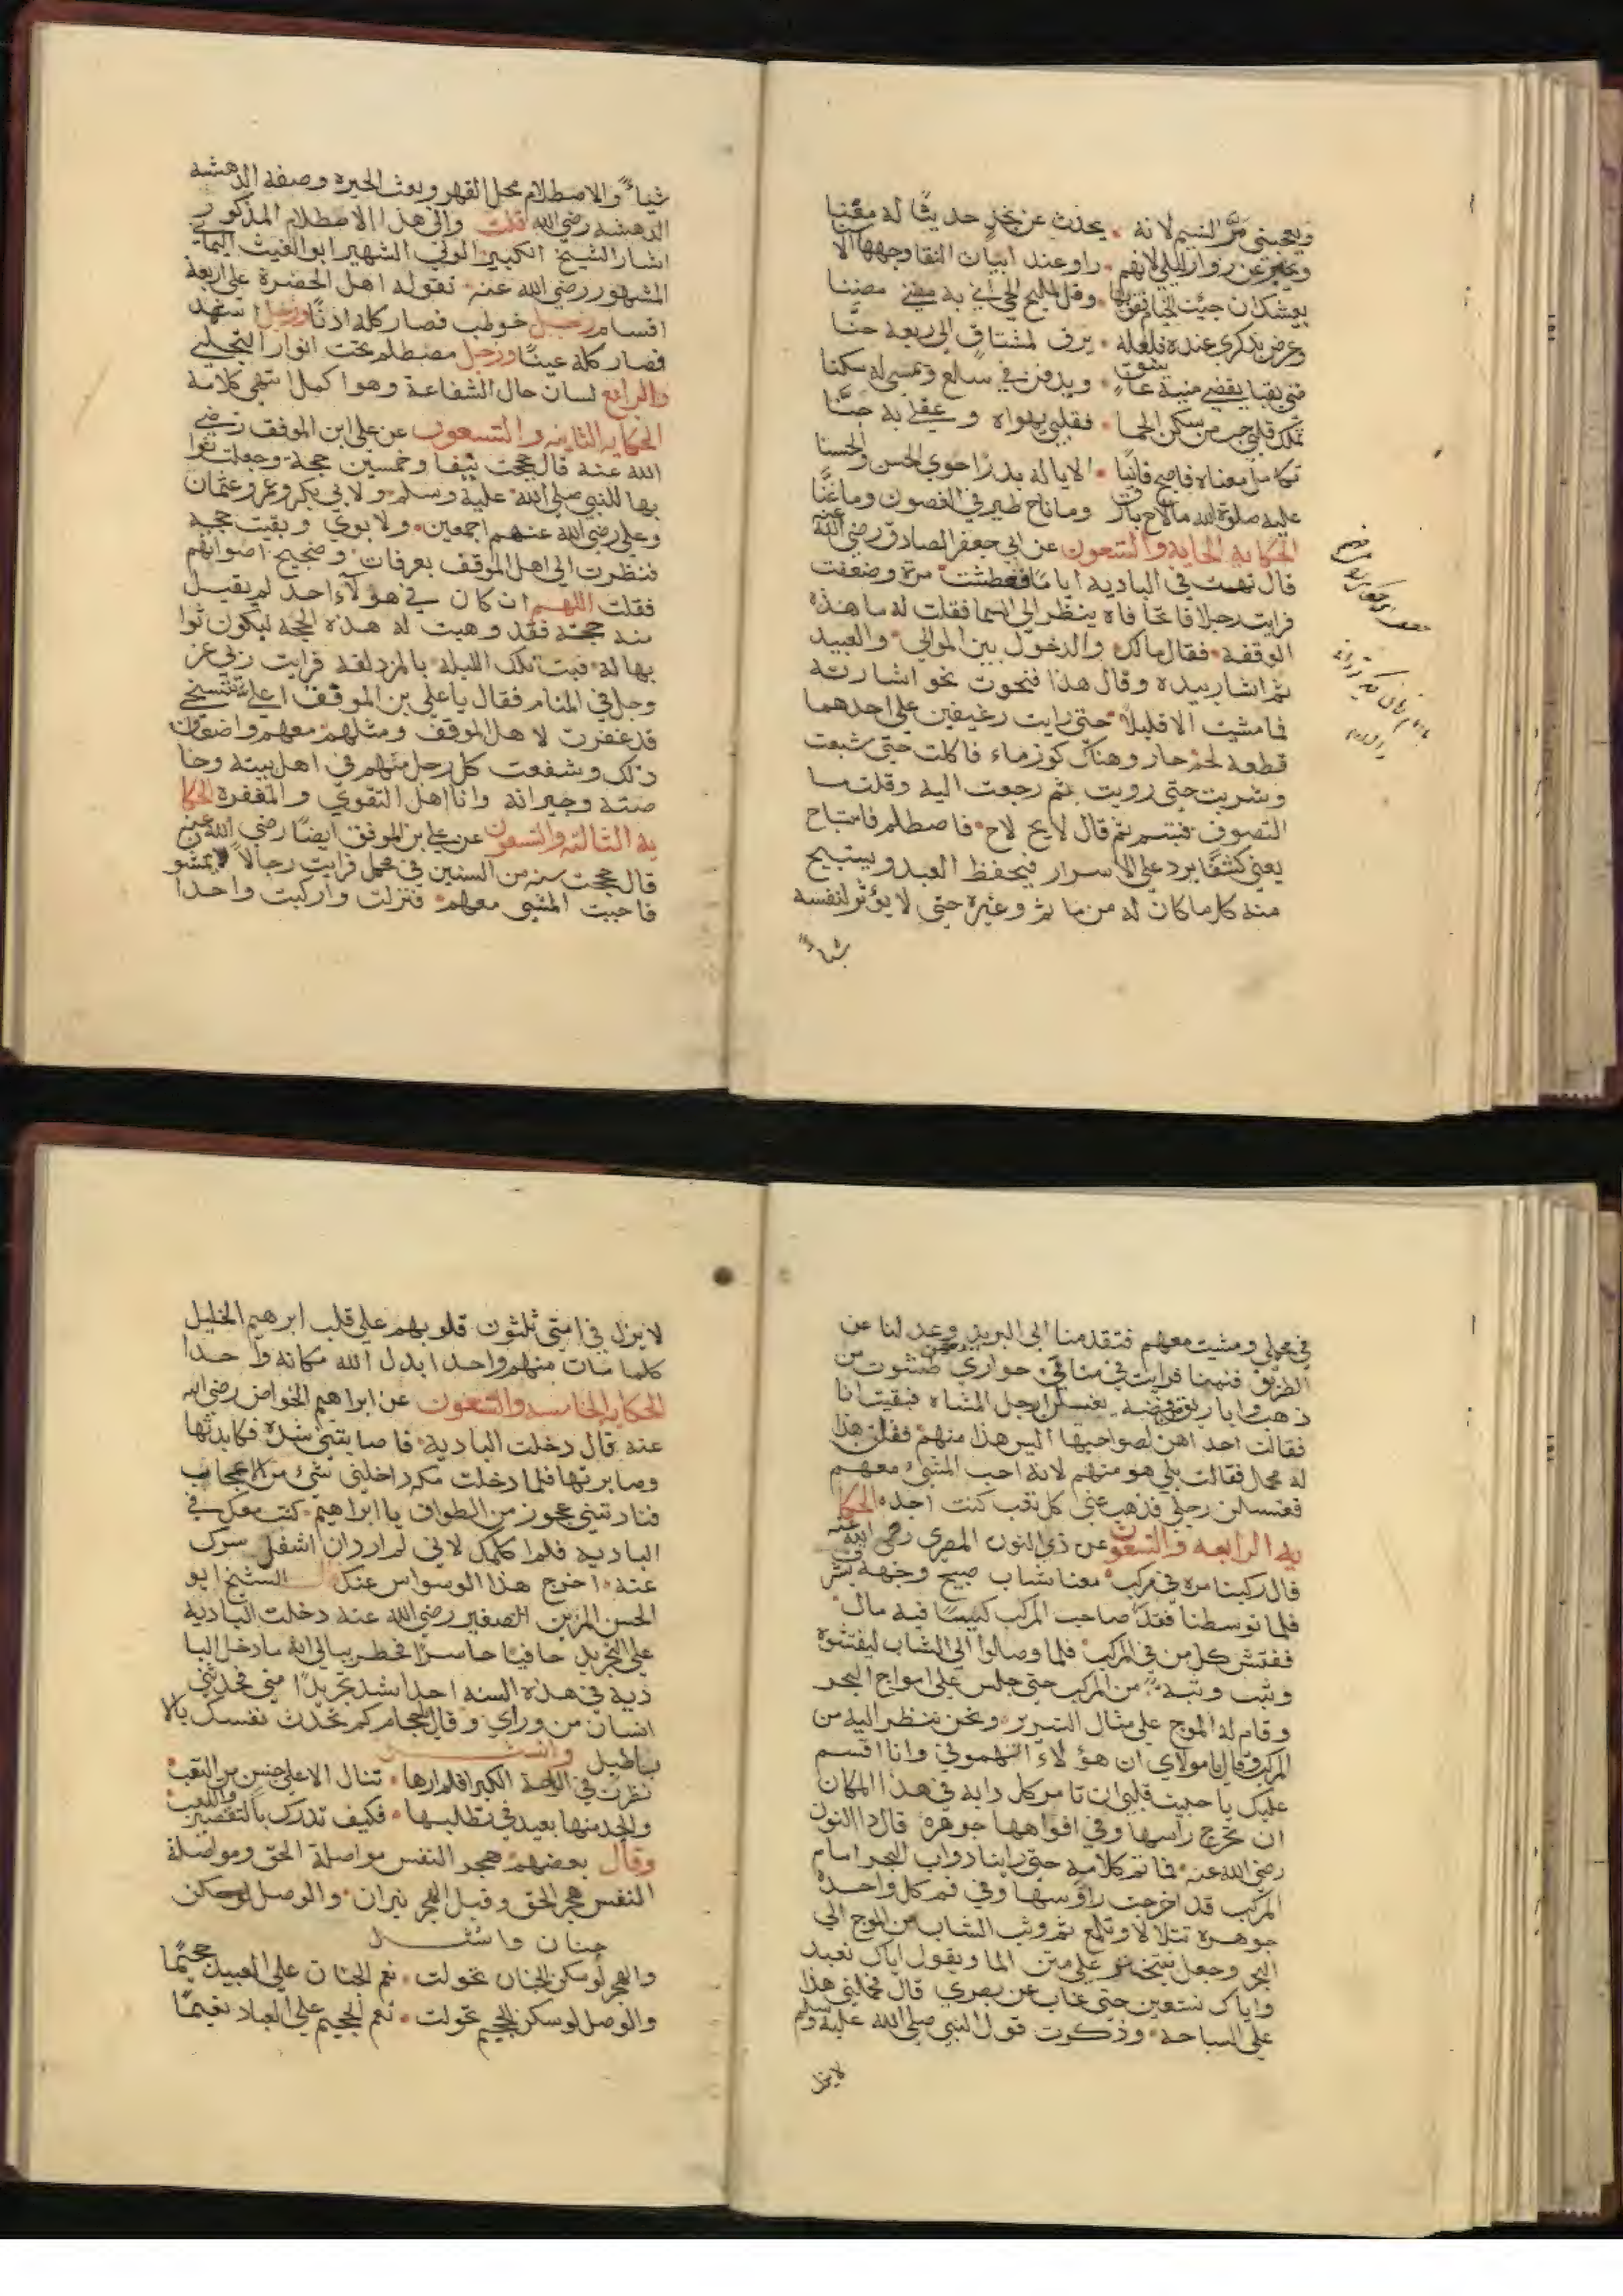 ويعجبني مَرُّ النسيم لانه يحدث عن نجدٍ حديثًا له معنا
ويخبر عن زوار ليلي لانهم راو عند ابيان النقا وجهها
بعيشك ان جيت الخيام وقل لمليح الحي اني به مضنا
وعرض بذكري عنده فلعله يرق لمشتاق الي ربعه حنَّا
متي بقبا يقضي منية عاشق ويدفن في سلع وتمسي له سكنا
تملك قلبي حب من سكن الحما فقلبي يهواه وعقلي به جنَّا
تكامل معناه فاصبح فانيًا الا ياله بدرًا حوي الحسن والحسنا
عليه صلوة الله ما لاح بارق وما ناح طير في الغصون وما غنَّا
الحكاية الحادية والتسعون عن ابي جعفر الصادق رضي الله عنه
قال تهت في البادية اياما فعطشت مرة وضعفت
فرايت رجلا فاتحا فاه ينظر الي السما فقلت له ما هذه
الوقفة فقال مالك والدخول بين الموالي والعبيد
ثم اشار بيده وقال هذا فنحوت نحو اشارته
فما مشيت الا قليلا حتي رايت رغيفين علي احدهما
قطعة لحم حار وهناك كوز ماء فاكلت حتي شبعت
وشربت حتي رويت ثم رجعت اليه وقلت ما
التصوف فتبسم ثم قال لايح لاح فاصطلم فاستباح
يعني كشفًا يرد علي الاسرار فيحفظ العبد ويستبيح
منه كل ما كان له من ما ثم وغيره حتي لا يؤثر لنفسه
شياءً
شياءً والاصطلام محل القهر ونعت الحيرة وصفة الدهشة
الدهشة رضي الله قلت والي هذا الاصطلام المذكور
اشار الشيخ الكبير الولي الشهير ابو الغيث اليماني
المشهور رضي الله عنه بقوله اهل الحضرة علي اربعة
اقسام رجل خوطب فصار كله اذنًا ورجل اشهد
فصار كله عينًا ورجل مصطلم تحت انوار التجلي
والرابع لسان حال الشفاعة وهو اكمل انتهي كلامه
الحكاية الثانية والتسعون عن علي ابن الموفق رضي
الله عنه قال حججت نيفا وخمسين حجة وجعلت ثوا
بها للنبي صلي الله عليه وسلم ولابي بكر وعمر وعثمان
وعلي رضي الله عنهم اجمعين ولابوي وبقيت حجة
فنظرت الي اهل الموقف بعرفات وضجيج اصواتهم
فقلت اللهم ان كان في هؤلآء احد لم يقبل
منه حجته فقد وهبت له هذه الحجه ليكون ثوا
بها له فبت تلك الليلة بالمزدلفة فرايت ربي عز
وجل في المنام فقال يا علي بن الموفق اعلي تتسخي
قد غفرت لاهل الموقف ومثلهم معهم واضعاف
ذلك وشفعت كل رجل منهم في اهل بيته وخا
صته وجيرانه وانا اهل التقوي والمغفرة الحكا
ية الثالثة والتسعون عن علي بن الموفق ايضًا رضي الله عنه
قال حججت سنه من السنين في محمل فرايت رجالا يمشو
فاحببت المشي معهم فنزلت واركبت واحدا
في محملي ومشيت معهم فتقدمنا الي البريد وعدلنا عن
الطريق فنمنا فرايت في منامي جواري معهن طشوت من
ذهب واباريق فضة يغسلن ارجل المشاه فبقيت انا
فقالت احداهن لصواحبها اليس هذا منهم فقلن هذا
له محمل فقالت بلي هو منهم لانه احب المشي معهم
فغسلن رجلي فذهب عني كل تعب كنت اجده الحكا
ية الرابعة والتسعون عن ذي النون المصري رضي الله عنه
قال ركبنا مرة في مركب معنا شاب صبيح وجهه يشرق
فلما توسطنا فقد صاحب المركب كيسًا فيه مال
ففتش كل من في المركب فلما وصلوا الي الشاب ليفتشوه
وثب وثبة من المركب حتي جلس علي امواج البحر
وقام له الموج علي مثال السرير ونحن ننظر اليه من
المركب وقال يا مولاي ان هؤلاء اتهموني وانا اقسم
عليك يا حبيب قلبي ان تامر كل دابه في هذا المكان
ان تخرج راسها وفي افواهها جوهرة قال ذا النون
رضي الله عنه فما تم كلامه حتي راينا دواب البحر امام
المركب قد اخرجت راؤسها وفي فم كل واحدة
جوهرة تتلالا وتلمع ثم وثب الشاب من الموج الي
البحر وجعل يتبختر علي متن الما ويقول اياك نعبد
واياك نستعين حتي غاب عن بصري قال فحملني هذا
علي السياحة وذكرت قول النبي صلي الله عليه وسلم
لايزل
لايزل في امتي ثلثون قلوبهم علي قلب ابرهيم الخليل
كلما مات منهم واحد ابدل الله مكانه واحدا
الحكاية الخامسة والتسعون عن ابراهيم الخواص رضي الله
عنه قال دخلت البادية فاصابتني شدة فكابدتها
وصابرتها فلما دخلت مكه داخلني شيء من الاعجاب
فنادتني عجوز من الطواف يا ابراهيم كنت معك في
البادية فلم اكلمك لاني لم ارد ان اشغل سرك
عنه اخرج هذا الوسواس عنك الشيخ ابو
الحسن المزين الصغير رضي الله عنه دخلت البادية
علي التجريد حافيًا حاسرًا فخطر ببالي انه ما دخل البا
دية في هذه السنه احد اشد تجريدًا مني فجذبني
انسان من وراي وقال يا حجام كم تحدث نفسك بالا
باطيل وانشد
نظرت في الراحة الكبرا فلم ارها تنال الا علي جنس من التعب
والجد منها بعيد في تطلبها فكيف تدرك بالتقصير واللعب
وقال بعضهم هجر النفس مواصلة الحق ومواصلة
النفس هجر الحق وقيل الهجر نيران والوصل لو سكن
جنان وانشد
والهجر لو سكن الجنان تحولت نعم الجنان علي العبيد جحيمًا
والوصل لو سكن الجحيم تحولت نعم الجحيم علي العباد نعيمًا